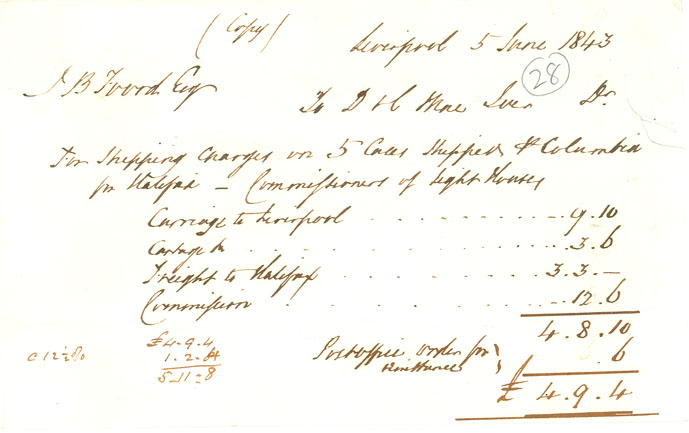 (Copy)
Liverpool 5 June 1843
28
J B Foord Esq
To D & C Mac Iver Dr.
For Shipping Charges on 5 Cases Shipped P Columbia
for Halifax – Commissioners of Light Houses
Carriage to Liverpool . . . . . . . . . . . 9.10
Cartage &c . . . . . . . . . . . . 3.6
Freight to Halifax . . . . . . . . . . 3.3.—
Commission . . . . . . . . . . 12.6
4.8.10
Post office order for remittance } .6
£ 4.9.4
c 12½%
£4.9.4
1.2.4
5.11.8